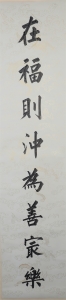 在福則沖為善㝡樂